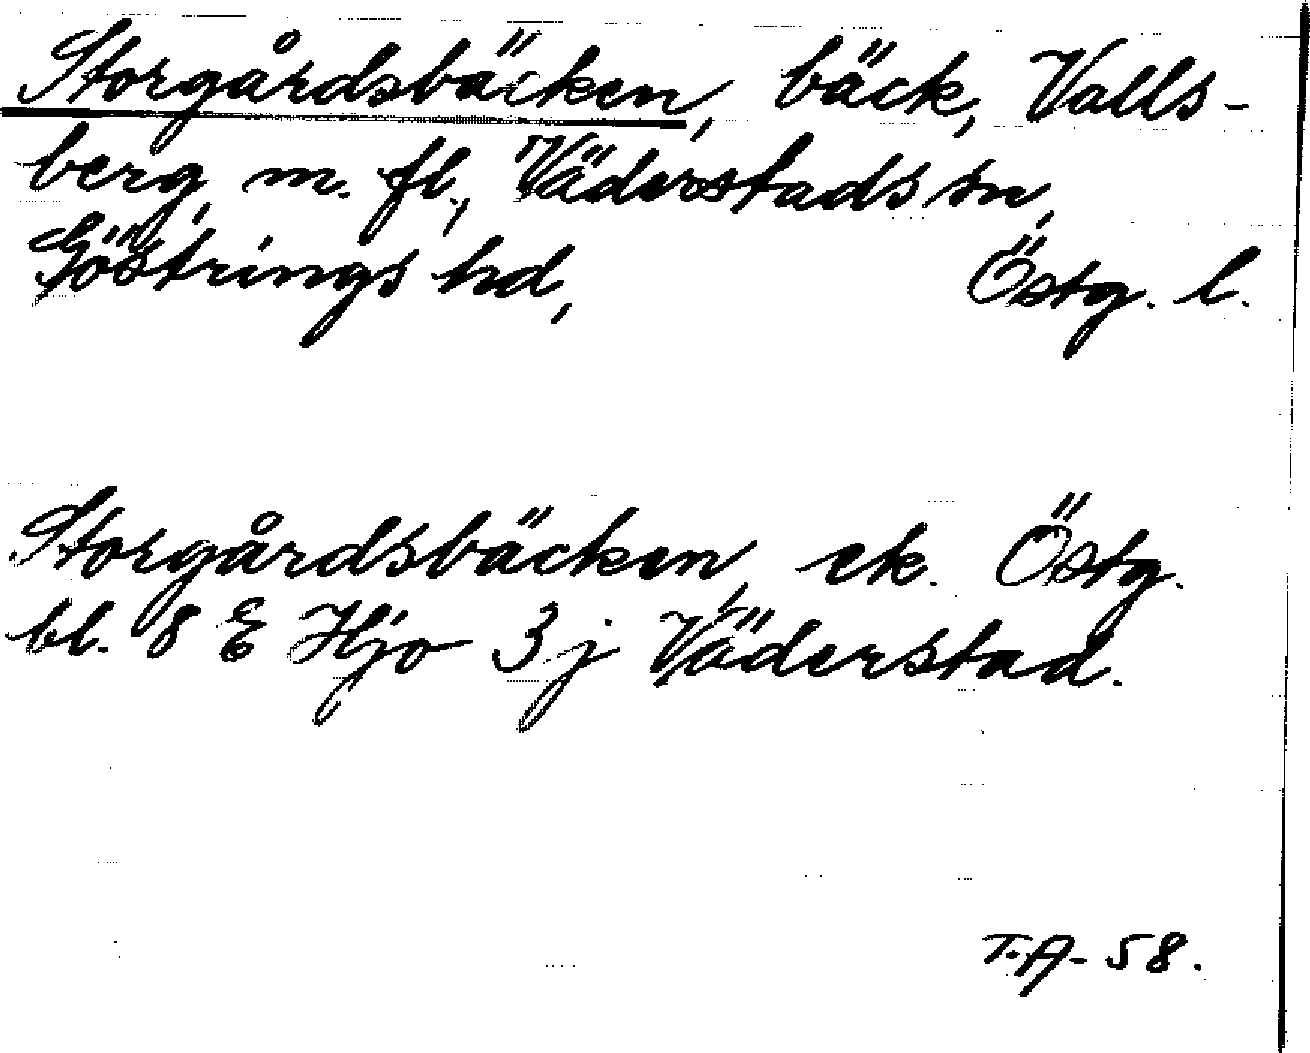 Storgårdsbäcken, bäck, Valls-
berg, m. fl., Väderstads sn,
Göstrings hd, Östg. l.
Storgårdsbäcken, ek. Östg.
bl. 8 E Hjo 3 j Väderstad.
T.A- 58.